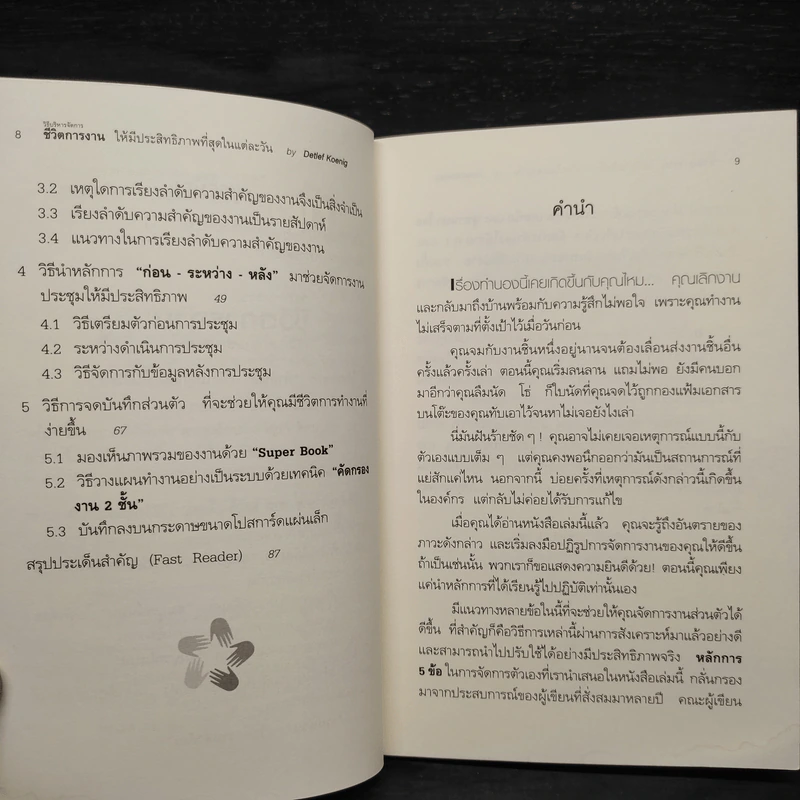 วิธีบริหารจัดการ
8 ชีวิตการงาน ให้มีประสิทธิภาพที่สุดในแต่ละวัน by Detlef Koenig
3.2 เหตุใดการเรียงลำดับความสำคัญของงานจึงเป็นสิ่งจำเป็น
3.3 เรียงลำดับความสำคัญของงานเป็นรายสัปดาห์
3.4 แนวทางในการเรียงลำดับความสำคัญของงาน
4 วิธีนำหลักการ "ก่อน - ระหว่าง - หลัง" มาช่วยจัดการงาน
ประชุมให้มีประสิทธิภาพ 49
4.1 วิธีเตรียมตัวก่อนการประชุม
4.2 ระหว่างดำเนินการประชุม
4.3 วิธีจัดการกับข้อมูลหลังการประชุม
5 วิธีการจดบันทึกส่วนตัว ที่จะช่วยให้คุณมีชีวิตการทำงานที่
ง่ายขึ้น 67
5.1 มองเห็นภาพรวมของงานด้วย "Super Book"
5.2 วิธีวางแผนทำงานอย่างเป็นระบบด้วยเทคนิค "คัดกรอง
งาน 2 ชั้น"
5.3 บันทึกลงบนกระดาษขนาดโปสการ์ดแผ่นเล็ก
สรุปประเด็นสำคัญ (Fast Reader) 87
9
คำนำ
เรื่องทำนองนี้เคยเกิดขึ้นกับคุณไหม... คุณเลิกงาน
และกลับมาถึงบ้านพร้อมกับความรู้สึกไม่พอใจ เพราะคุณทำงาน
ไม่เสร็จตามที่ตั้งเป้าไว้เมื่อวันก่อน
คุณจมกับงานชิ้นหนึ่งอยู่นานจนต้องเลื่อนส่งงานชิ้นอื่น
ครั้งแล้วครั้งเล่า ตอนนี้คุณเริ่มลนลาน แถมไม่พอ ยังมีคนบอก
มาอีกว่าคุณลืมนัด โธ่ ก็ใบนัดที่คุณจดไว้ถูกกองแฟ้มเอกสาร
บนโต๊ะของคุณทับเอาไว้จนหาไม่เจอยังไงเล่า
นี่มันฝันร้ายชัด ๆ! คุณอาจไม่เคยเจอเหตุการณ์แบบนี้กับ
ตัวเองแบบเต็ม ๆ แต่คุณคงพอนึกออกว่ามันเป็นสถานการณ์ที่
แย่สักแค่ไหน นอกจากนี้ บ่อยครั้งที่เหตุการณ์ดังกล่าวนี้เกิดขึ้น
ในองค์กร แต่กลับไม่ค่อยได้รับการแก้ไข
เมื่อคุณได้อ่านหนังสือเล่มนี้แล้ว คุณจะรู้ถึงอันตรายของ
ภาวะดังกล่าว และเริ่มลงมือปฏิรูปการจัดการงานของคุณให้ดีขึ้น
ถ้าเป็นเช่นนั้น พวกเราก็ขอแสดงความยินดีด้วย! ตอนนี้คุณเพียง
แค่นำหลักการที่ได้เรียนรู้ไปปฏิบัติเท่านั้นเอง
มีแนวทางหลายข้อในนี้ที่จะช่วยให้คุณจัดการงานส่วนตัวได้
ดีขึ้น ที่สำคัญก็คือวิธีการเหล่านี้ผ่านการสังเคราะห์มาแล้วอย่างดี
และสามารถนำไปปรับใช้ได้อย่างมีประสิทธิภาพจริง หลักการ
5 ข้อ ในการจัดการตัวเองที่เรานำเสนอในหนังสือเล่มนี้ กลั่นกรอง
มาจากประสบการณ์ของผู้เขียนที่สั่งสมมาหลายปี คณะผู้เขียน